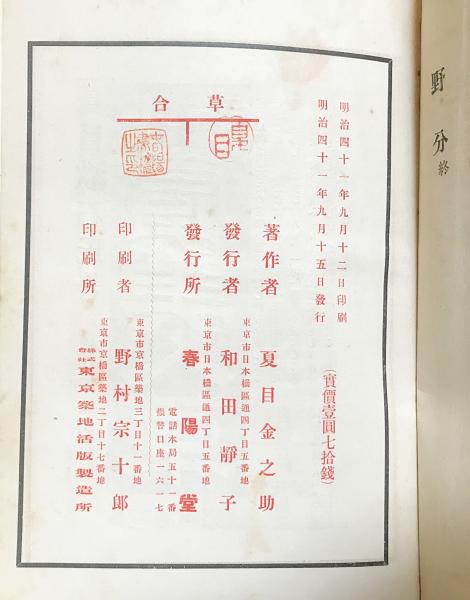 野分 終
明治四十一年九月十二日印刷
明治四十一年九月十五日發行
(實價壹圓七拾錢)
草合
夏目
著作者 夏目金之助
東京市日本橋區通四丁目五番地
發行者 和田靜子
東京市日本橋區通四丁目五番地
發行所 春陽堂
電話本局五十一番
振替口座一六一七
東京市京橋區築地三丁目十一番地
印刷者 野村宗十郎
東京市京橋區築地二丁目十七番地
印刷所 株式會社 東京築地活版製造所